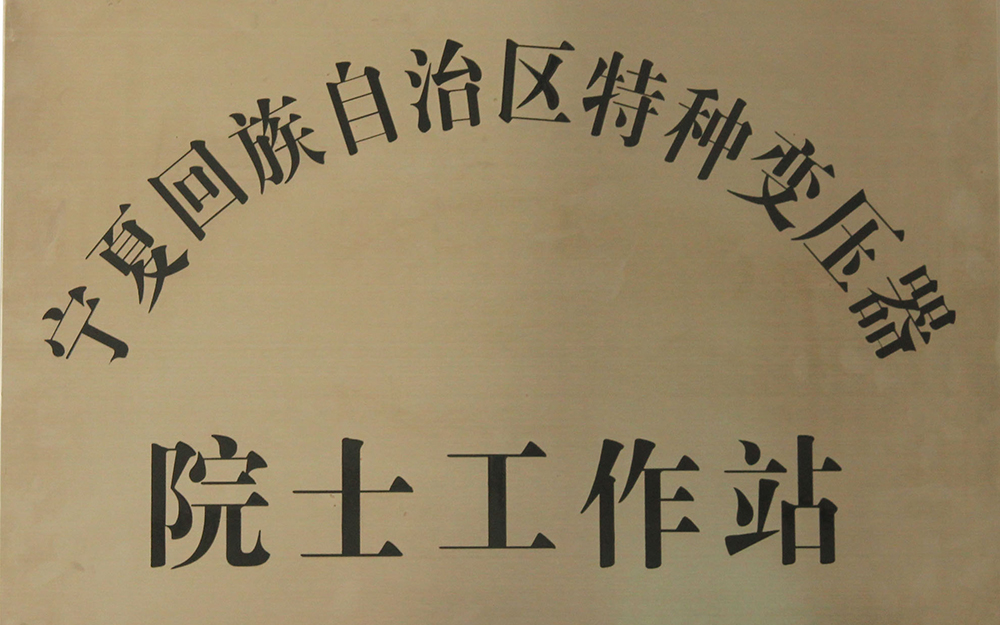 宁夏回族自治区特种变压器
院士工作站